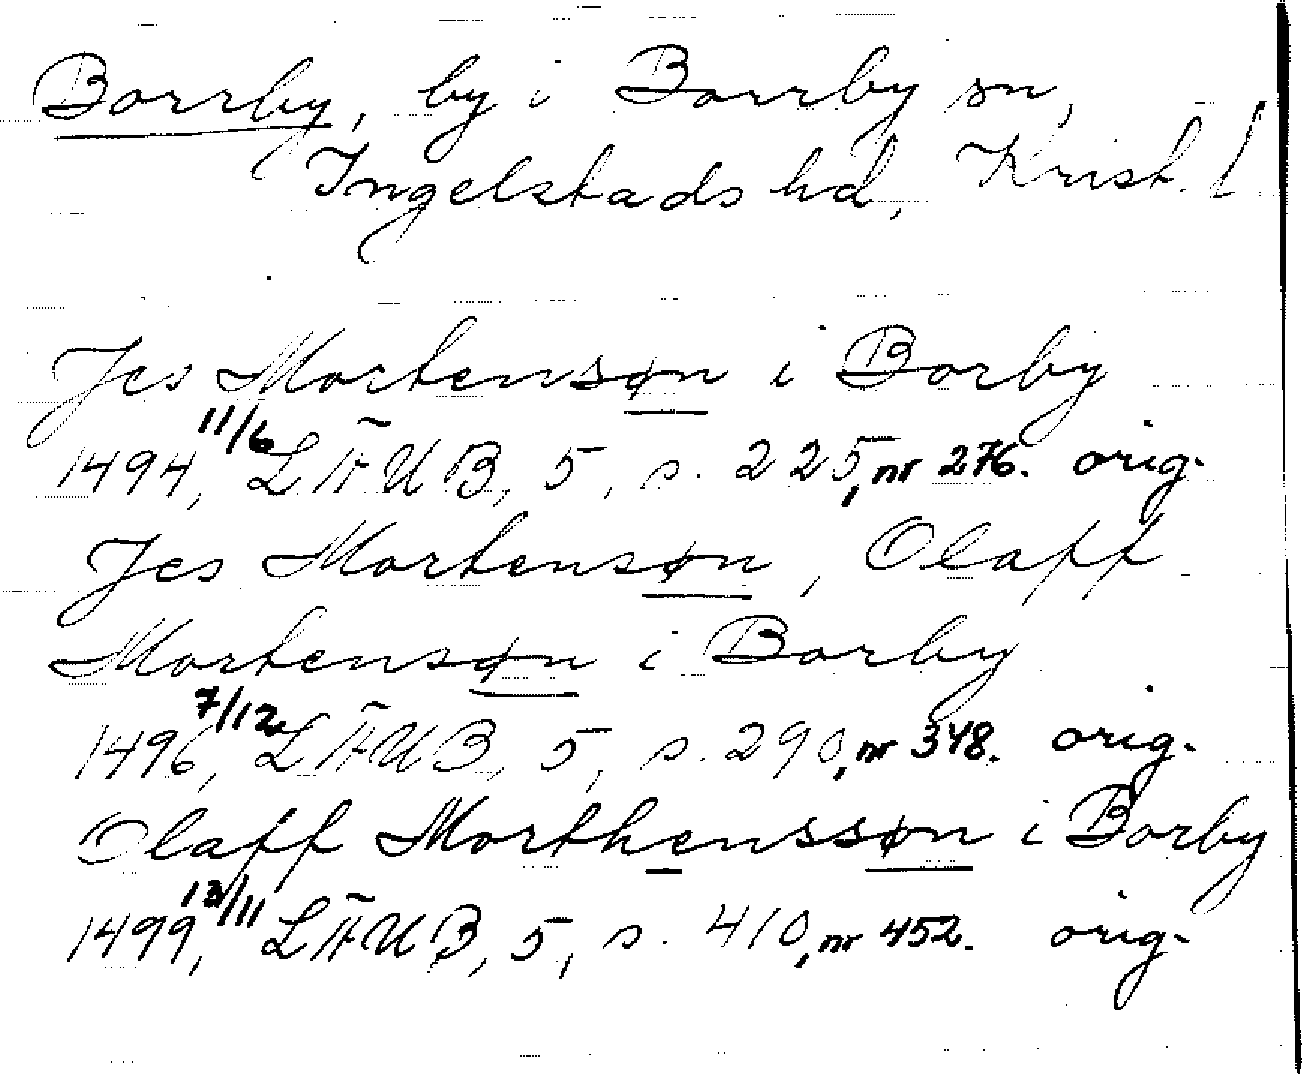 Borrby, by i Borrby sn,
Ingelstads hd, Krist. l
Jes Mortensøn i Borby
1494, 11/6 LÄUB, 5, s. 225, nr 276. orig.
Jes Mortensøn, Olaff
Mortensøn i Borby
1496, 7/12 LÄUB, 5, s. 290, nr 348. orig.
Olaff Morthenssøn i Borby
1499, 13/11 LÄUB, 5, s. 410, nr 452. orig.